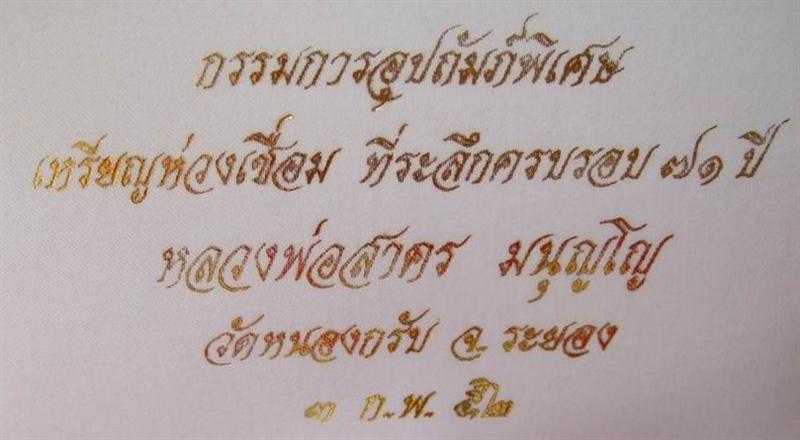 กรรมการอุปถัมภ์พิเศษ
เหรียญห่วงเชื่อม ที่ระลึกครบรอบ ๗๑ ปี
หลวงพ่อสาคร มนุญฺโญ
วัดหนองกรับ จ. ระยอง
๓ ก.พ. ๕๒